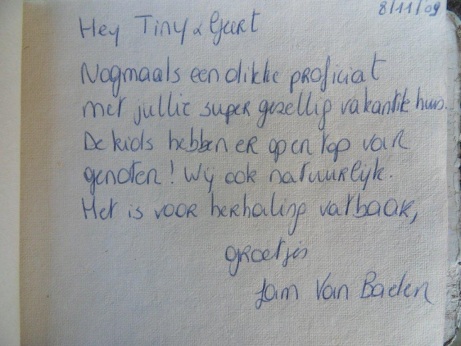 8/11/09
Hey Tiny & Geert
Nogmaals een dikke proficiat
met jullie super gezellig vakantie huis.
De kids hebben er op en top van
genoten! Wij ook natuurlijk.
Het is voor herhaling vatbaar,
groetjes
Fam Van Baelen